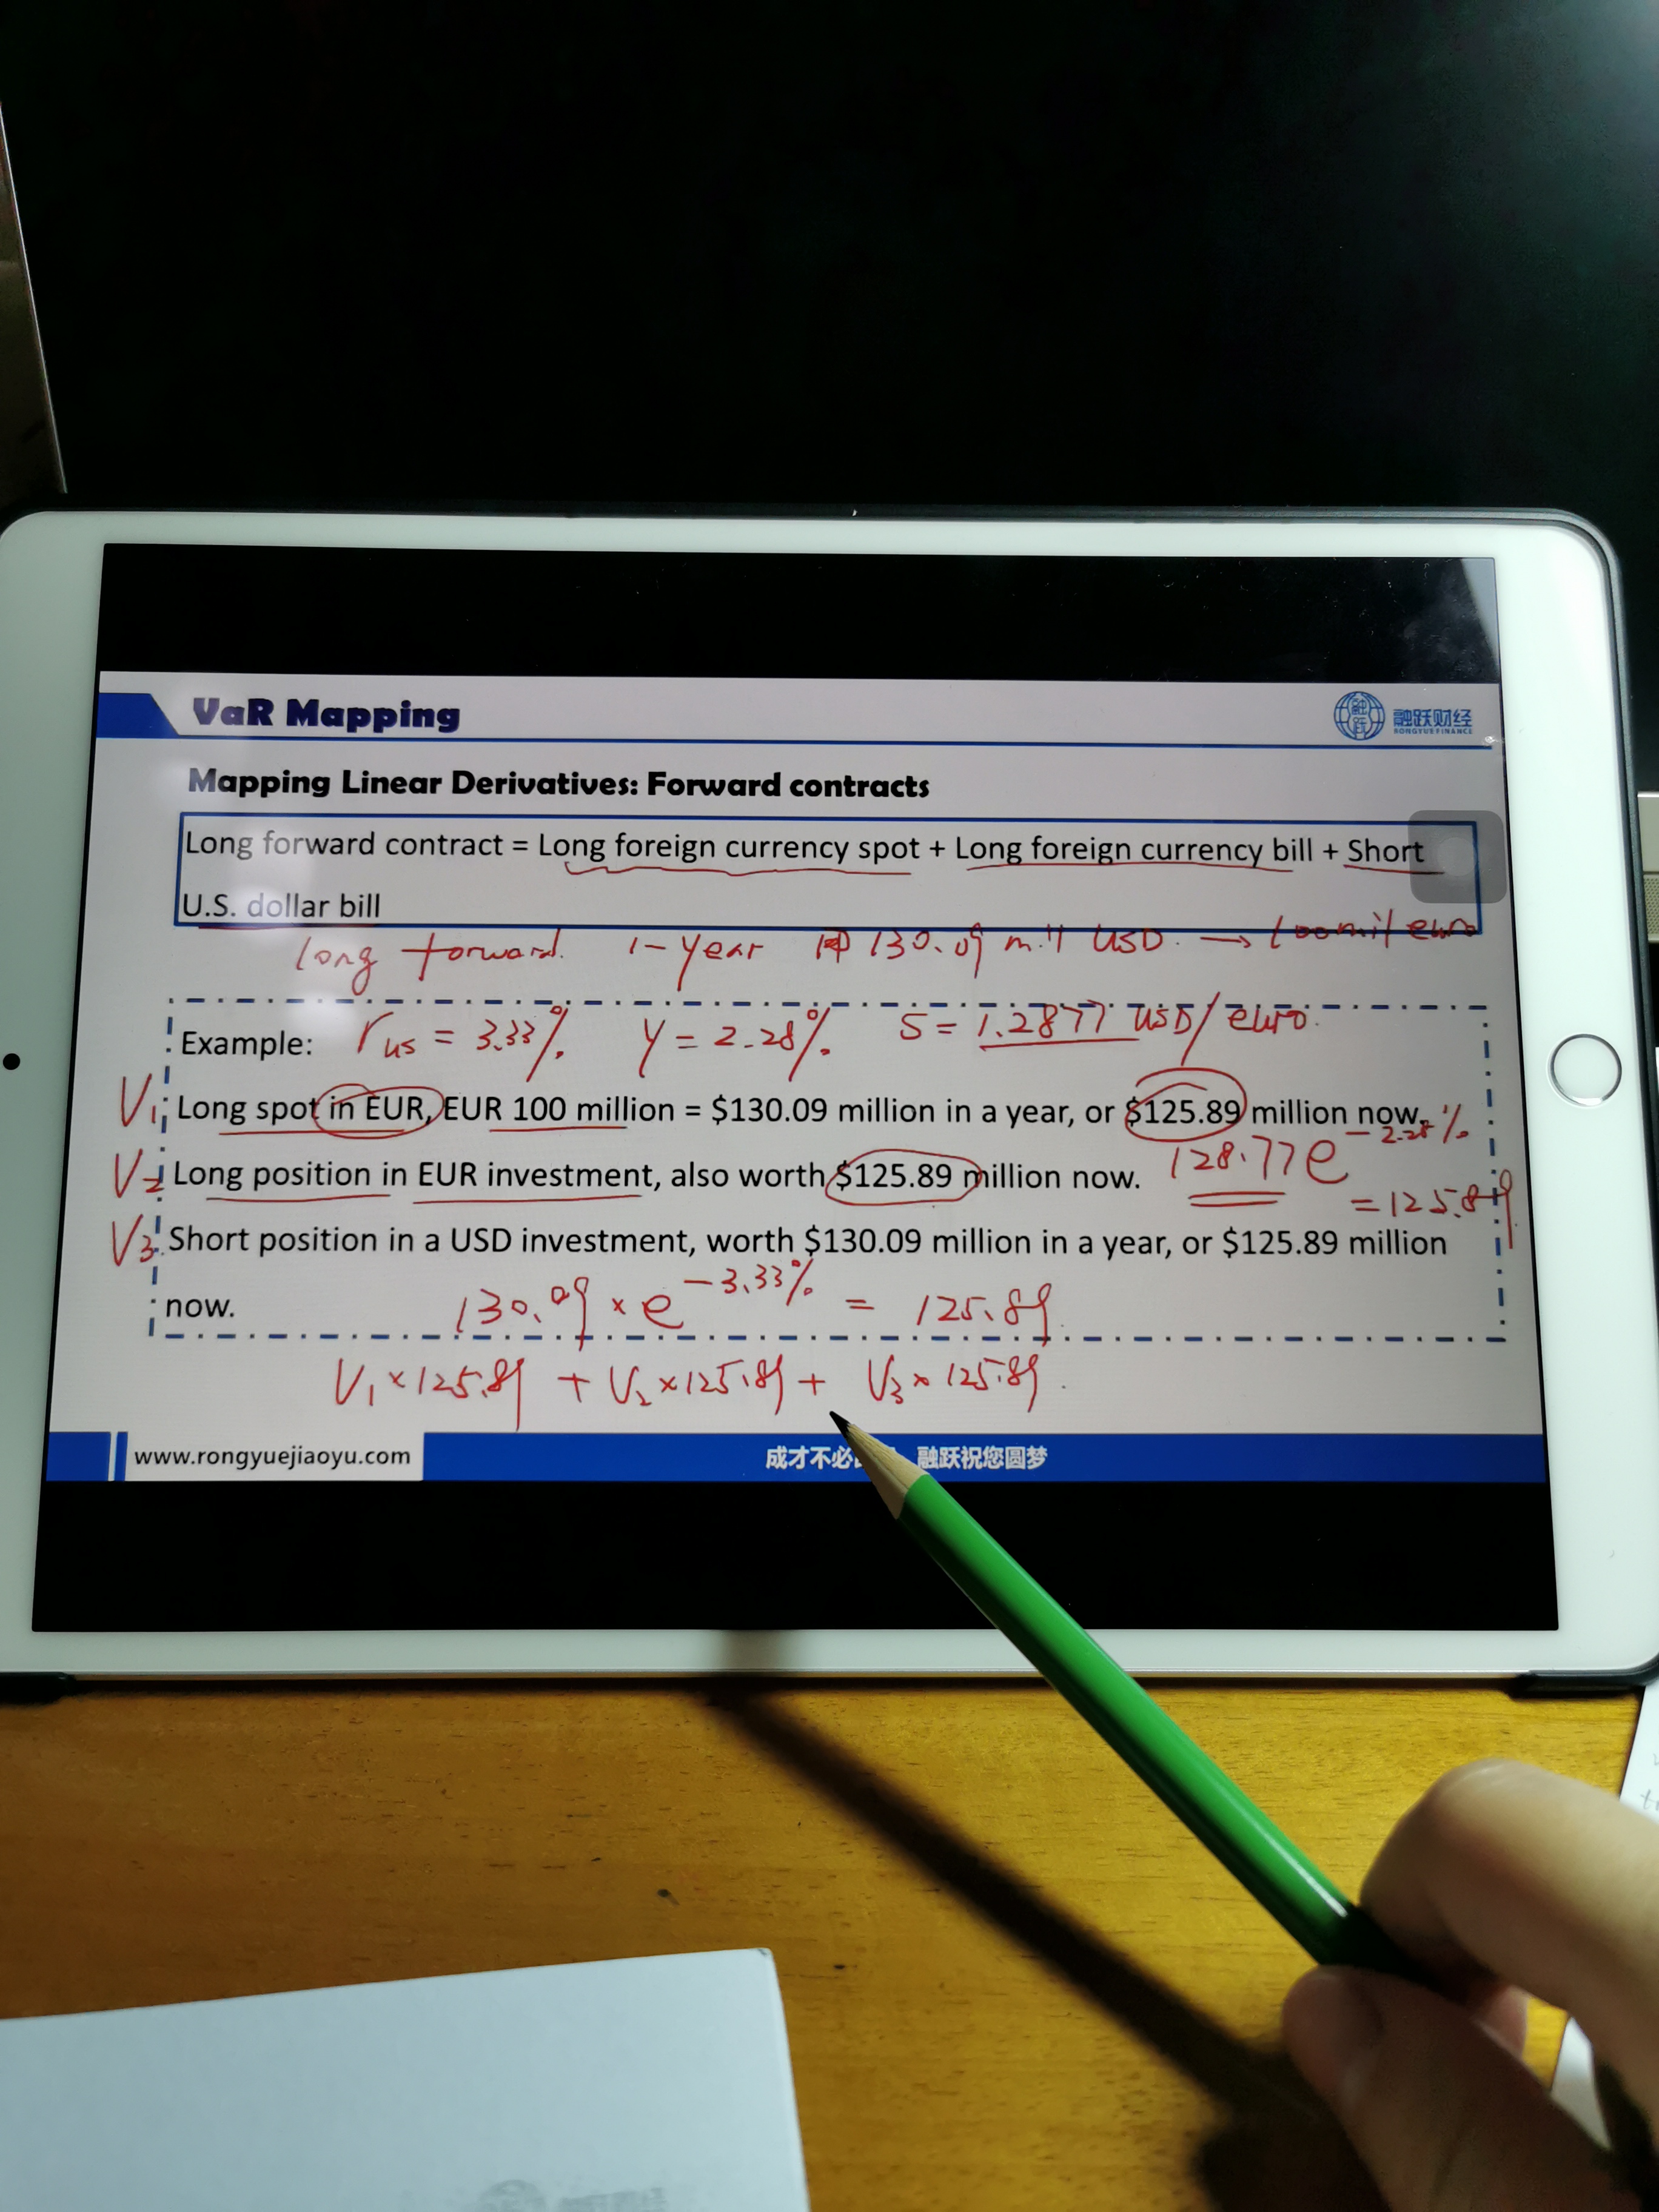 VaR Mapping
融跃财经
RONGYUE FINANCE
Mapping Linear Derivatives: Forward contracts
Long forward contract = Long foreign currency spot + Long foreign currency bill + Short
U.S. dollar bill
long forward. 1-year 用 130.09 mill USD. → 100mil euro
Example: r us = 3.33% y = 2.28% S = 1.2877 USD/euro
V1 Long spot in EUR, EUR 100 million = $130.09 million in a year, or $125.89 million now.
V2 Long position in EUR investment, also worth $125.89 million now. 128.77e -2.28%
= 125.89
V3 Short position in a USD investment, worth $130.09 million in a year, or $125.89 million
now. 130.09 × e -3.33% = 125.89
V1 × 125.89 + V2 × 125.89 + V3 × 125.89.
www.rongyuejiaoyu.com 成才不必 融跃祝您圆梦